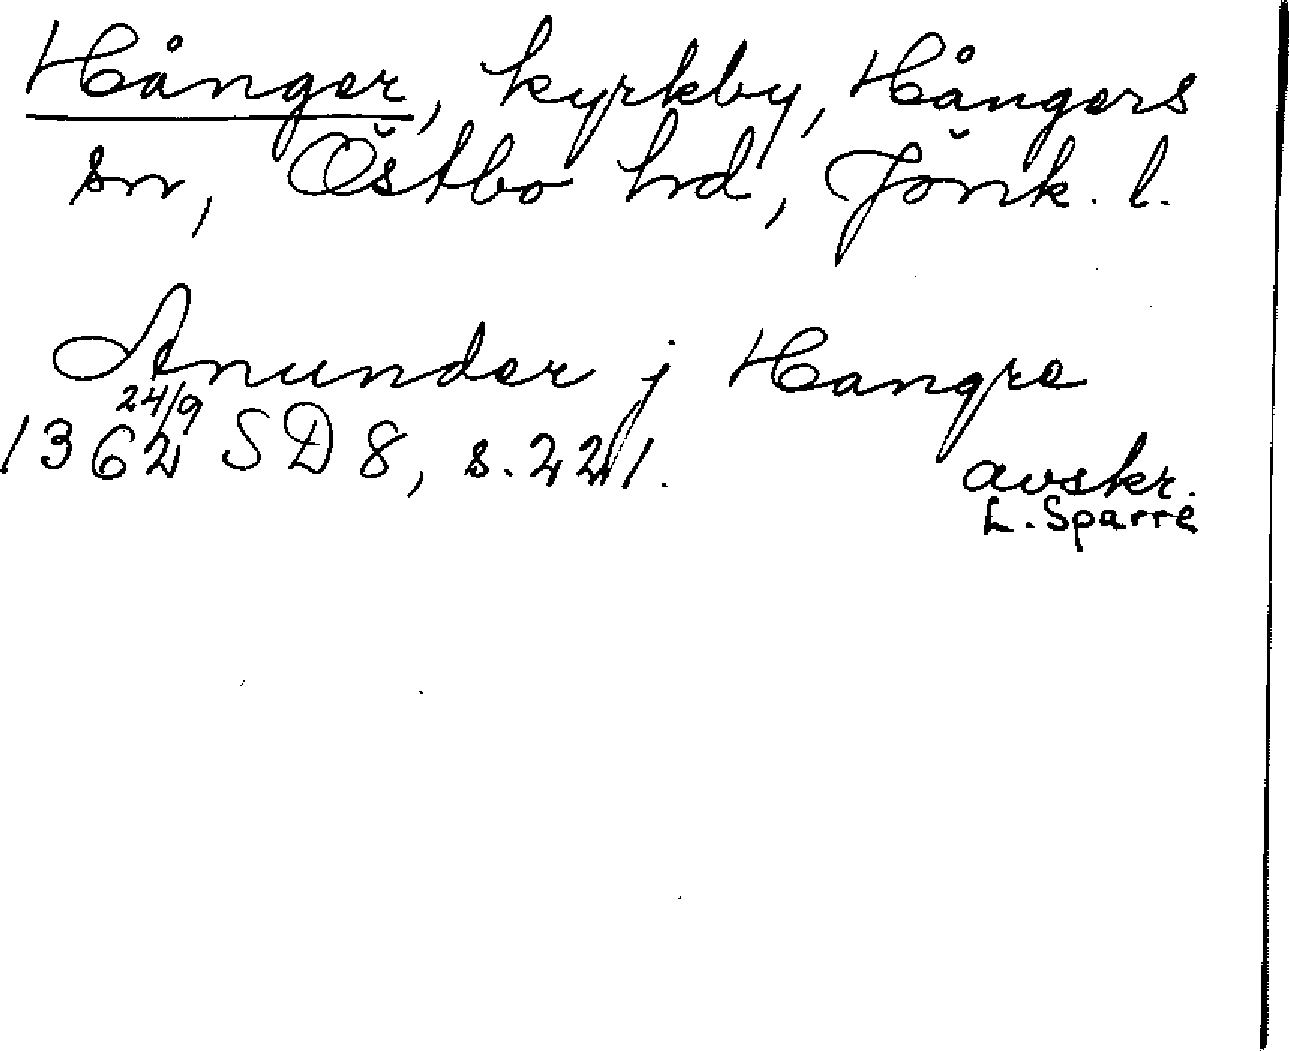 Hånger, kyrkby, Hångers
sn, Östbo hd, Jönk. l.
Anunder j Hangre
24/9
1362 SD 8, s. 221.
avskr.
L. Sparre